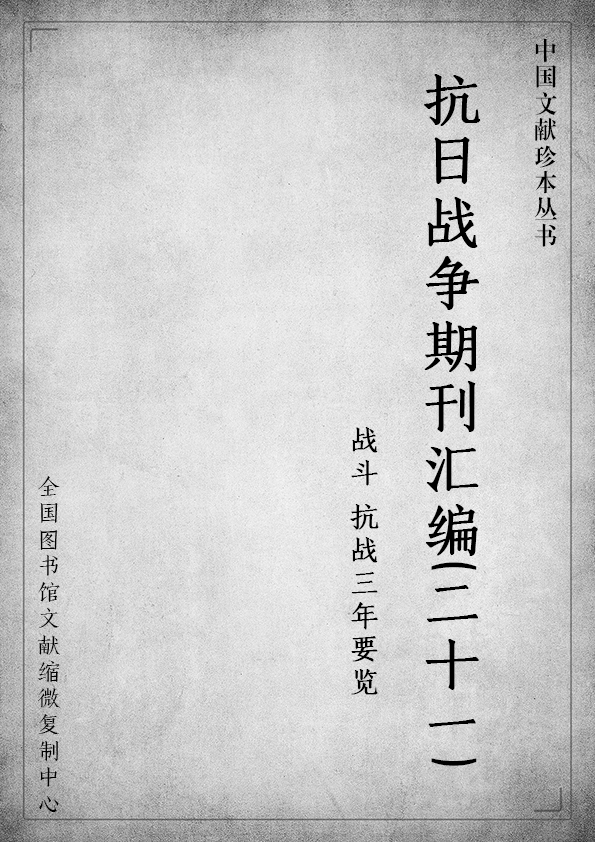 中国文献珍本丛书
抗日战争期刊汇编(二十一)
战斗 抗战三年要览
全国图书馆文献缩微复制中心